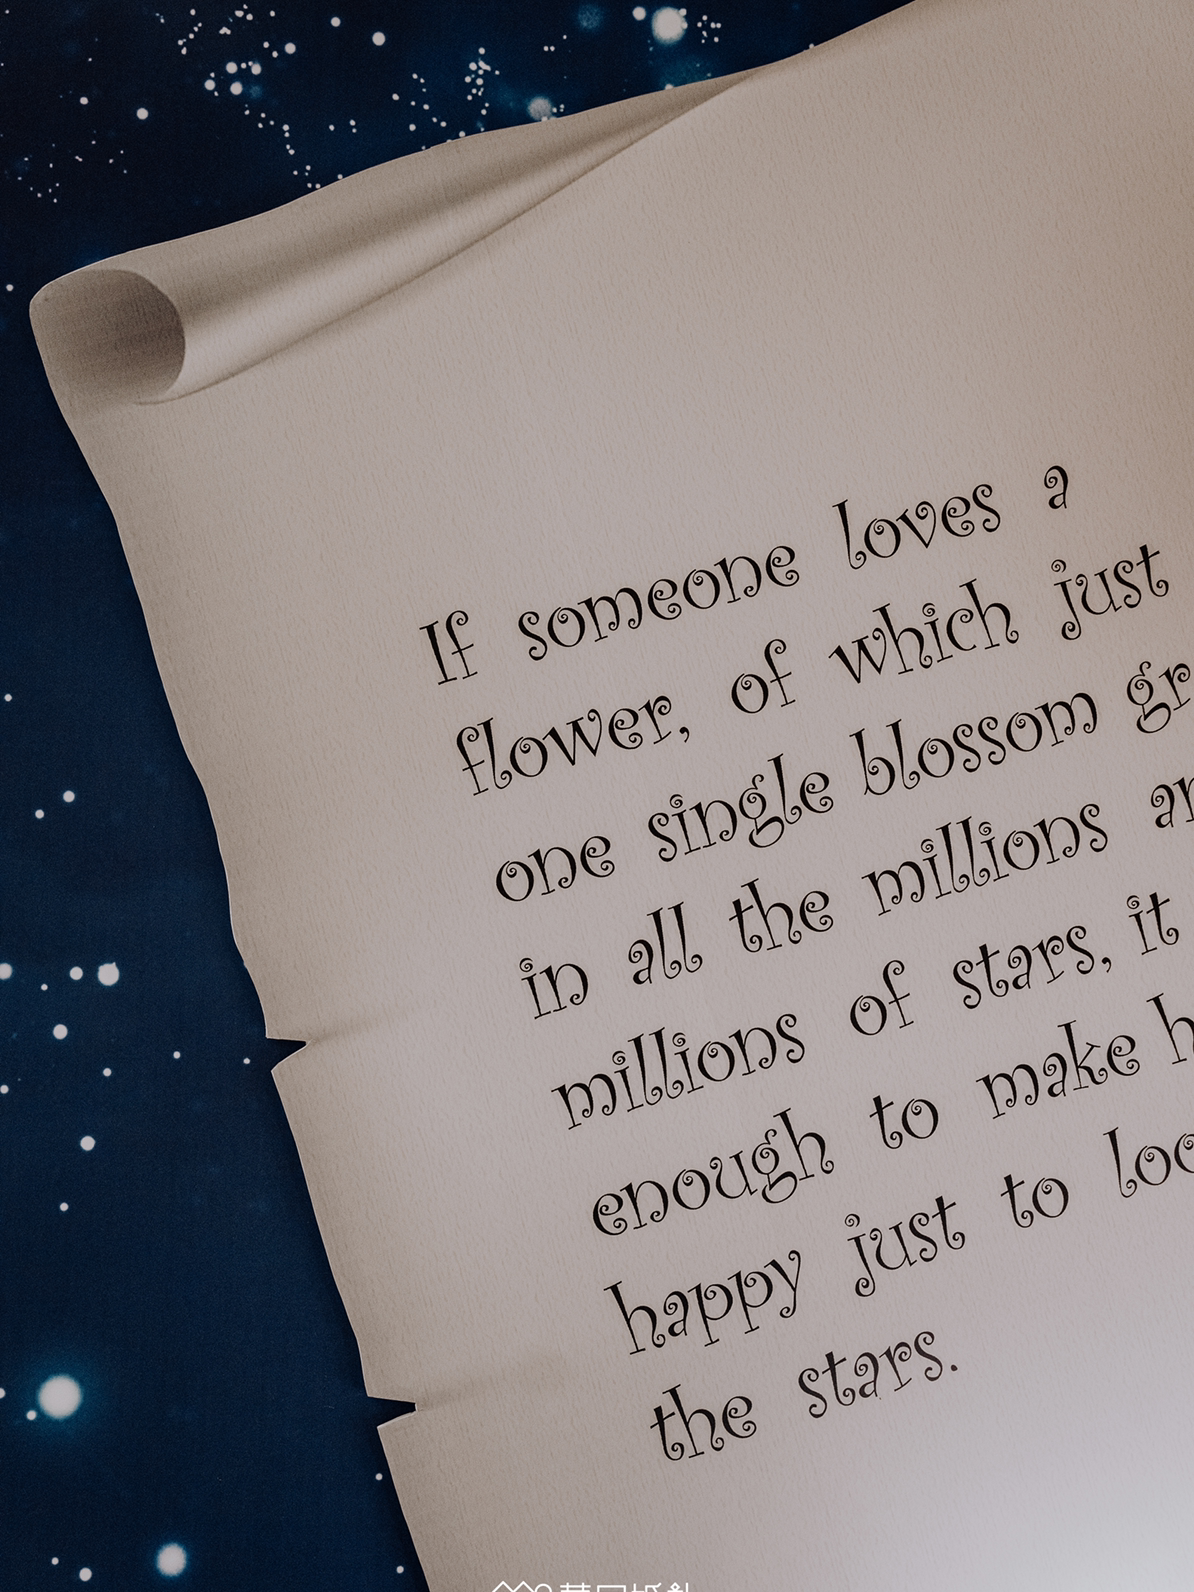 If someone loves a
flower, of which just
one single blossom gr
in all the millions an
millions of stars, it
enough to make h
happy just to loo
the stars.